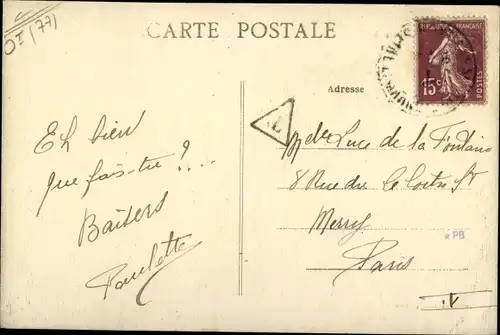 OI (77)
CARTE POSTALE
RÉPUBLIQUE FRANÇAISE
15c
POSTES
Adresse
T
Eh bien
que fais-tu?...
Baisers
Paulette
Luce de la Fontaine
8 Rue du Cloître St
Merry
Paris
* PB